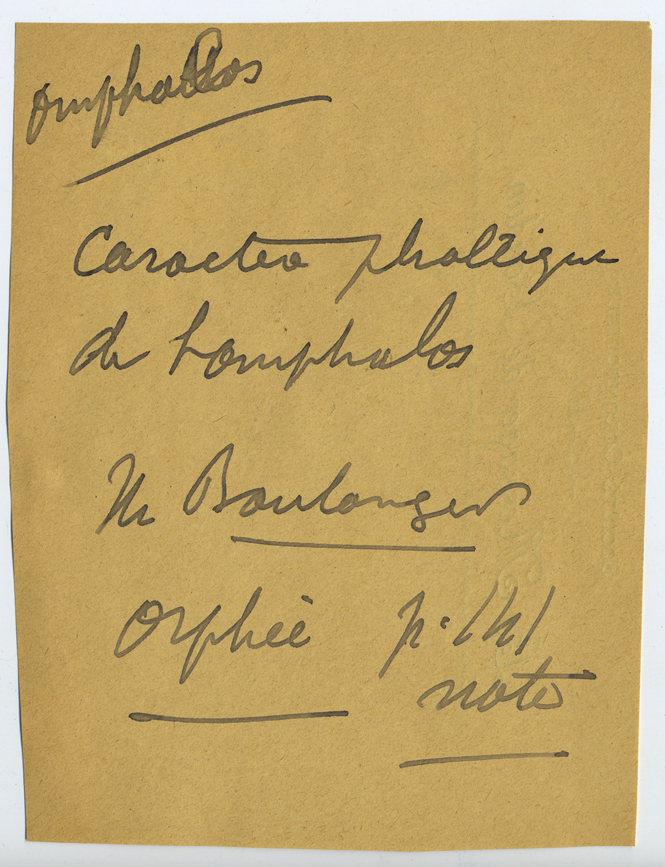 Omphalos
Caractère phallique
de l'omphalos
M Boulanger
Orphée p. 141
note